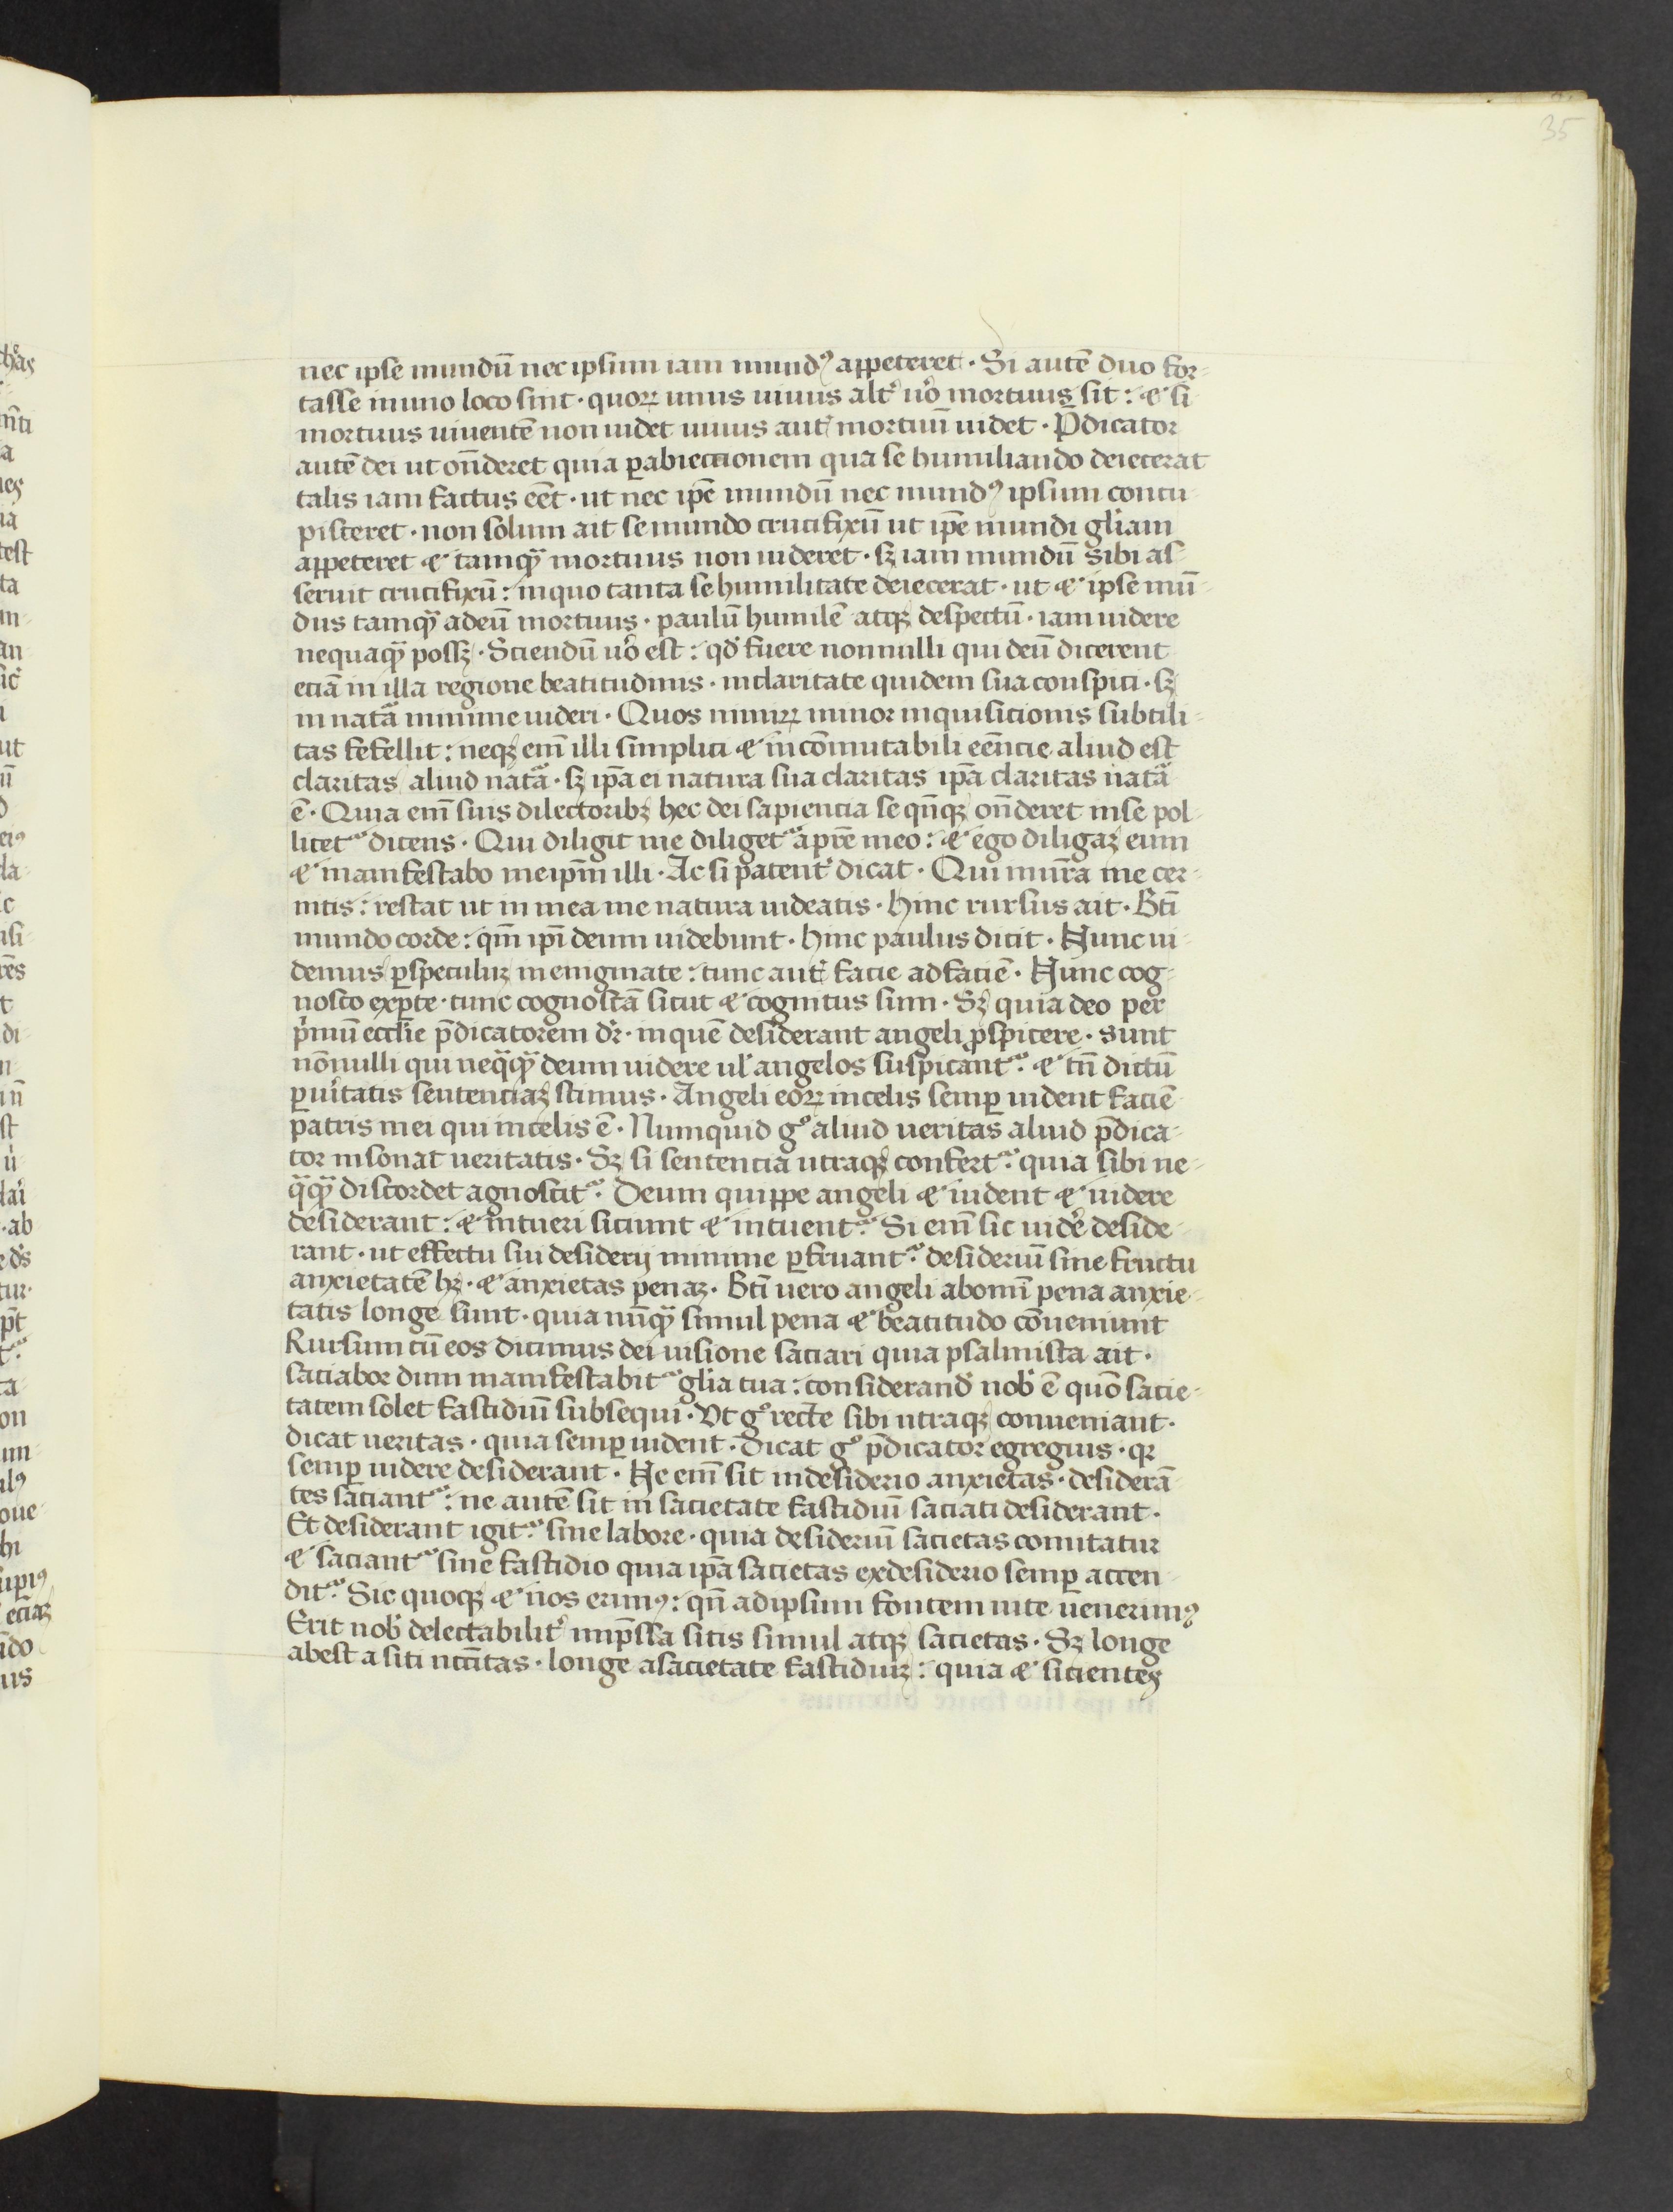 35
nec ipse mundū nec ipsum iam mundꝰ appeteret · Si autē duo for-
tasse in uno loco sint · quoꝝ unus uiuus alt̾ uo̾ mortuus sit : ⁊ si
mortuus uiuentē non uidet uiuus aut̾ mortuū uidet · P̄dicator
autē dei ut on̄deret quia ꝑ abiectionem qua se humiliando deiecerat
talis iam factus eēt · ut nec ip̄e mundū nec mundꝰ ipsum concu-
pisceret · non solum ait se mundo crucifixū ut ip̄e mundi gl̾iam
appeteret ⁊ tamqᷓ mortuus non uideret · sꝫ iam mundū sibi as-
seruit crucifixū : in quo tanta se humilitate deiecerat · ut ⁊ ipse mū-
dus tamqᷓ ad eū mortuus · paulū humilē atqꝫ despectū · iam uidere
nequaqᷓ possꝫ · Sciendū uo̾ est : qd̾ fuere nonnulli qui deū dicerent
eciā in illa regione beatitudinis · in claritate quidem sua conspici · sꝫ
in natᷓa minime uideri · Quos nimiꝝ minor inquisicionis subtili-
tas fefellit : neqꝫ em̄ illi simplici ⁊ incōmutabili eēncie aliud est
claritas aliud natᷓa · sꝫ ip̄a ei natura sua claritas ip̄a claritas natᷓa
ē · Quia em̄ suis dilectoribꝫ hec dei sapiencia se qn̄qꝫ on̄deret in se pol-
licet᷑ dicens · Qui diligit me diliget᷑ a pr̄e meo : ⁊ ego diligaꝫ eum
⁊ manifestabo me ip̄m illi · Ac si patent̾ dicat · Qui in ur̄a me cer-
nitis : restat ut in mea me natura uideatis · Hinc rursus ait · Bt̄i
mundo corde : qm̄ ip̄i deum uidebunt · Hinc paulus dicit · Nunc ui-
demus ꝑ speculuꝫ in enigmate : tunc aut̾ facie ad faciē · Nunc cog-
nosco ex ꝑte · tunc cognoscā sicut ⁊ cognitus sum · Sꝫ quia deo per
p̾mū eccl̄ie p̄dicatorem dr̄ · in quē desiderant angeli ꝓspicere · sunt
nōnulli qui neqᷓqᷓ deum uidere ul̾ angelos suspicant᷑ · ⁊ tn̄ dictū
ꝑ ui̾tatis sentenciaꝫ scimus · Angeli eoꝝ in celis semꝑ uident faciē
patris mei qui in celis ē · Numquid gͦ aliud ueritas aliud p̄dica-
tor insonat ueritatis · Sꝫ si sentencia utraqꝫ confert᷑ · quia sibi ne-
qᷓqᷓ discordet agnoscit᷑ · Deum quippe angeli ⁊ uident ⁊ uidere
desiderant : ⁊ intueri siciunt ⁊ intuent᷑ · Si em̄ sic uide̾ deside-
rant · ut effectu sui desiderij minime ꝑfruant᷑ · desideriū sine fructu
anxietatē hꝫ · ⁊ anxietas penaꝫ · Bt̄i uero angeli ab omī pena anxie-
tatis longe sunt · quia nūqᷓ simul pena ⁊ beatitudo cōueniunt
Rursum cū eos dicimus dei uisione saciari quia psalmista ait ·
saciabor dum manifestabit᷑ gl̄ia tua : considerand̾ nob̾ ē quō sacie-
tatem solet fastidiū subsequi · Vt gͦ recte sibi utraqꝫ conueniant ·
dicat ueritas · quia semꝑ uident · Dicat gͦ p̄dicator egregius · qꝛ
semꝑ uidere desiderant · Ne em̄ sit in desiderio anxietas · desiderā-
tes saciant᷑ : ne autē sit in sacietate fastidiū saciati desiderant ·
Et desiderant igit᷑ sine labore · quia desideriū sacietas comitatur
⁊ saciant᷑ sine fastidio quia ip̄a sacietas ex desiderio semꝑ accen-
dit᷑ · Sic quoqꝫ ⁊ nos erimꝰ : qn̄ ad ipsum fontem uite uenerimꝰ
Erit nob̾ delectabilit̾ imp̄ssa sitis simul atqꝫ sacietas · Sꝫ longe
abest a siti nc̄citas · longe a sacietate fastidiuꝫ : quia ⁊ sicientes